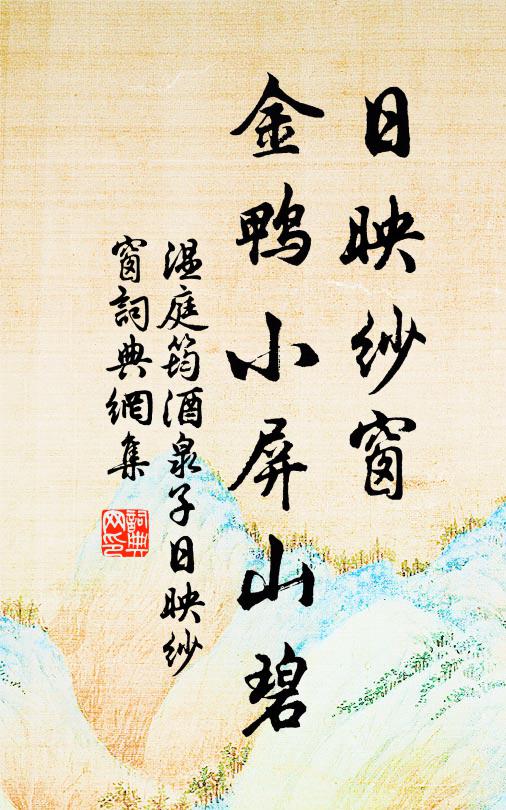 日映纱窗
金鸭小屏山碧
温庭筠酒泉子日映纱
窗詞典網集
詞典
网印